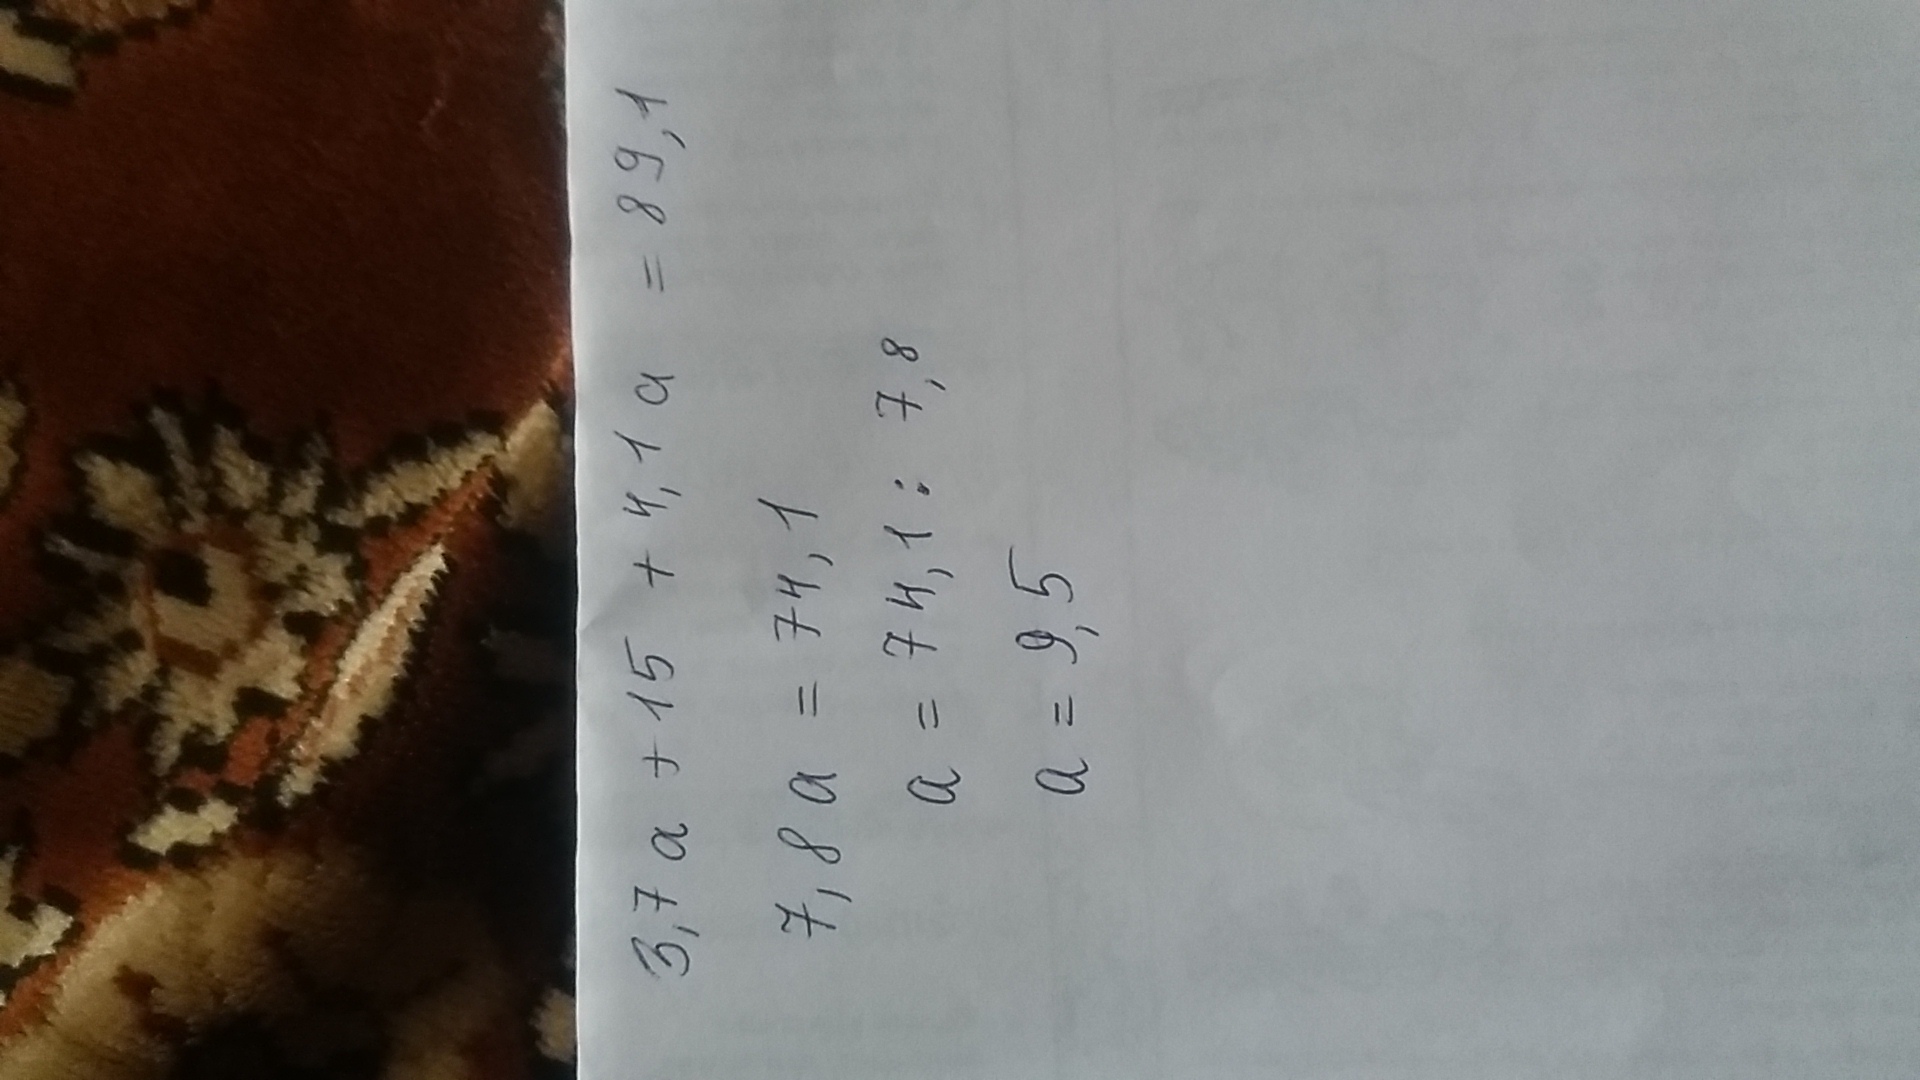 3,7a + 15 + 4,1a = 89,1
7,8a = 74,1
a = 74,1 : 7,8
a = 9,5